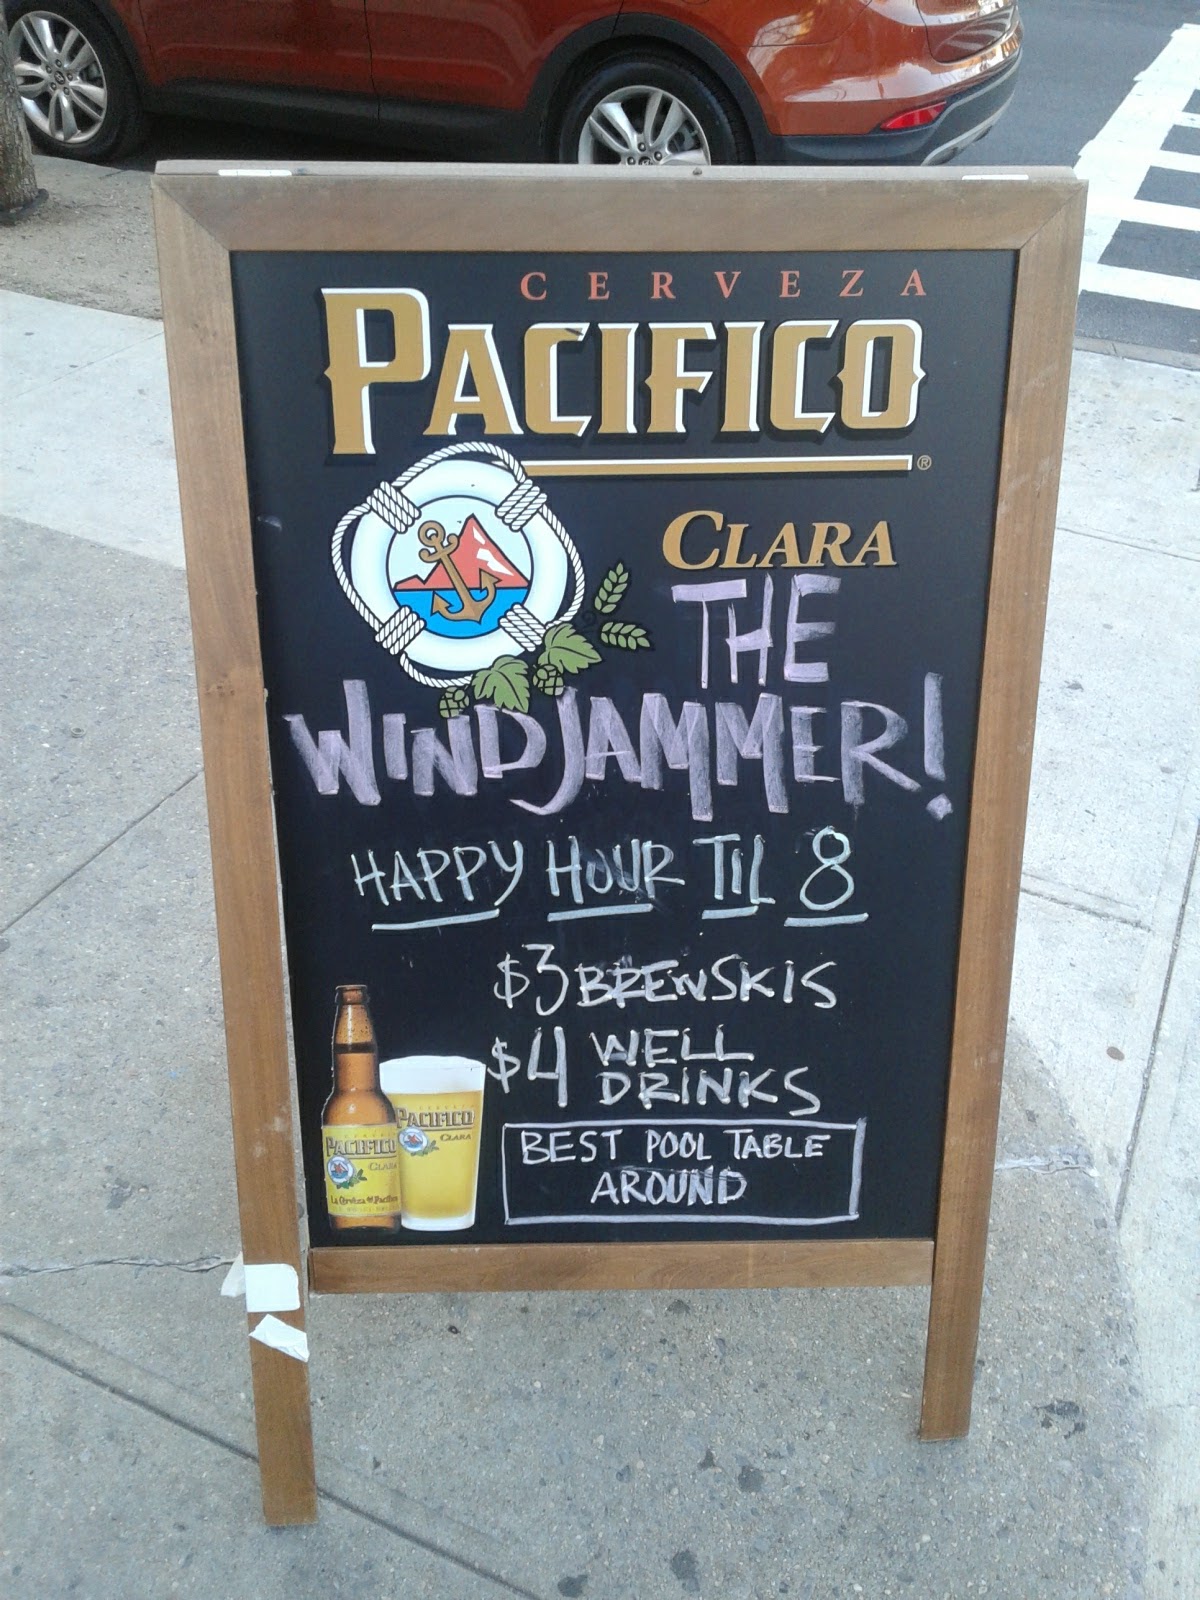 CERVEZA
PACIFICO
®
CLARA
THE
WINDJAMMER!
HAPPY HOUR TIL 8
$3 BREWSKIS
$4 WELL
DRINKS
BEST POOL TABLE
AROUND
PACIFICO
CLARA
PACIFICO
CLARA